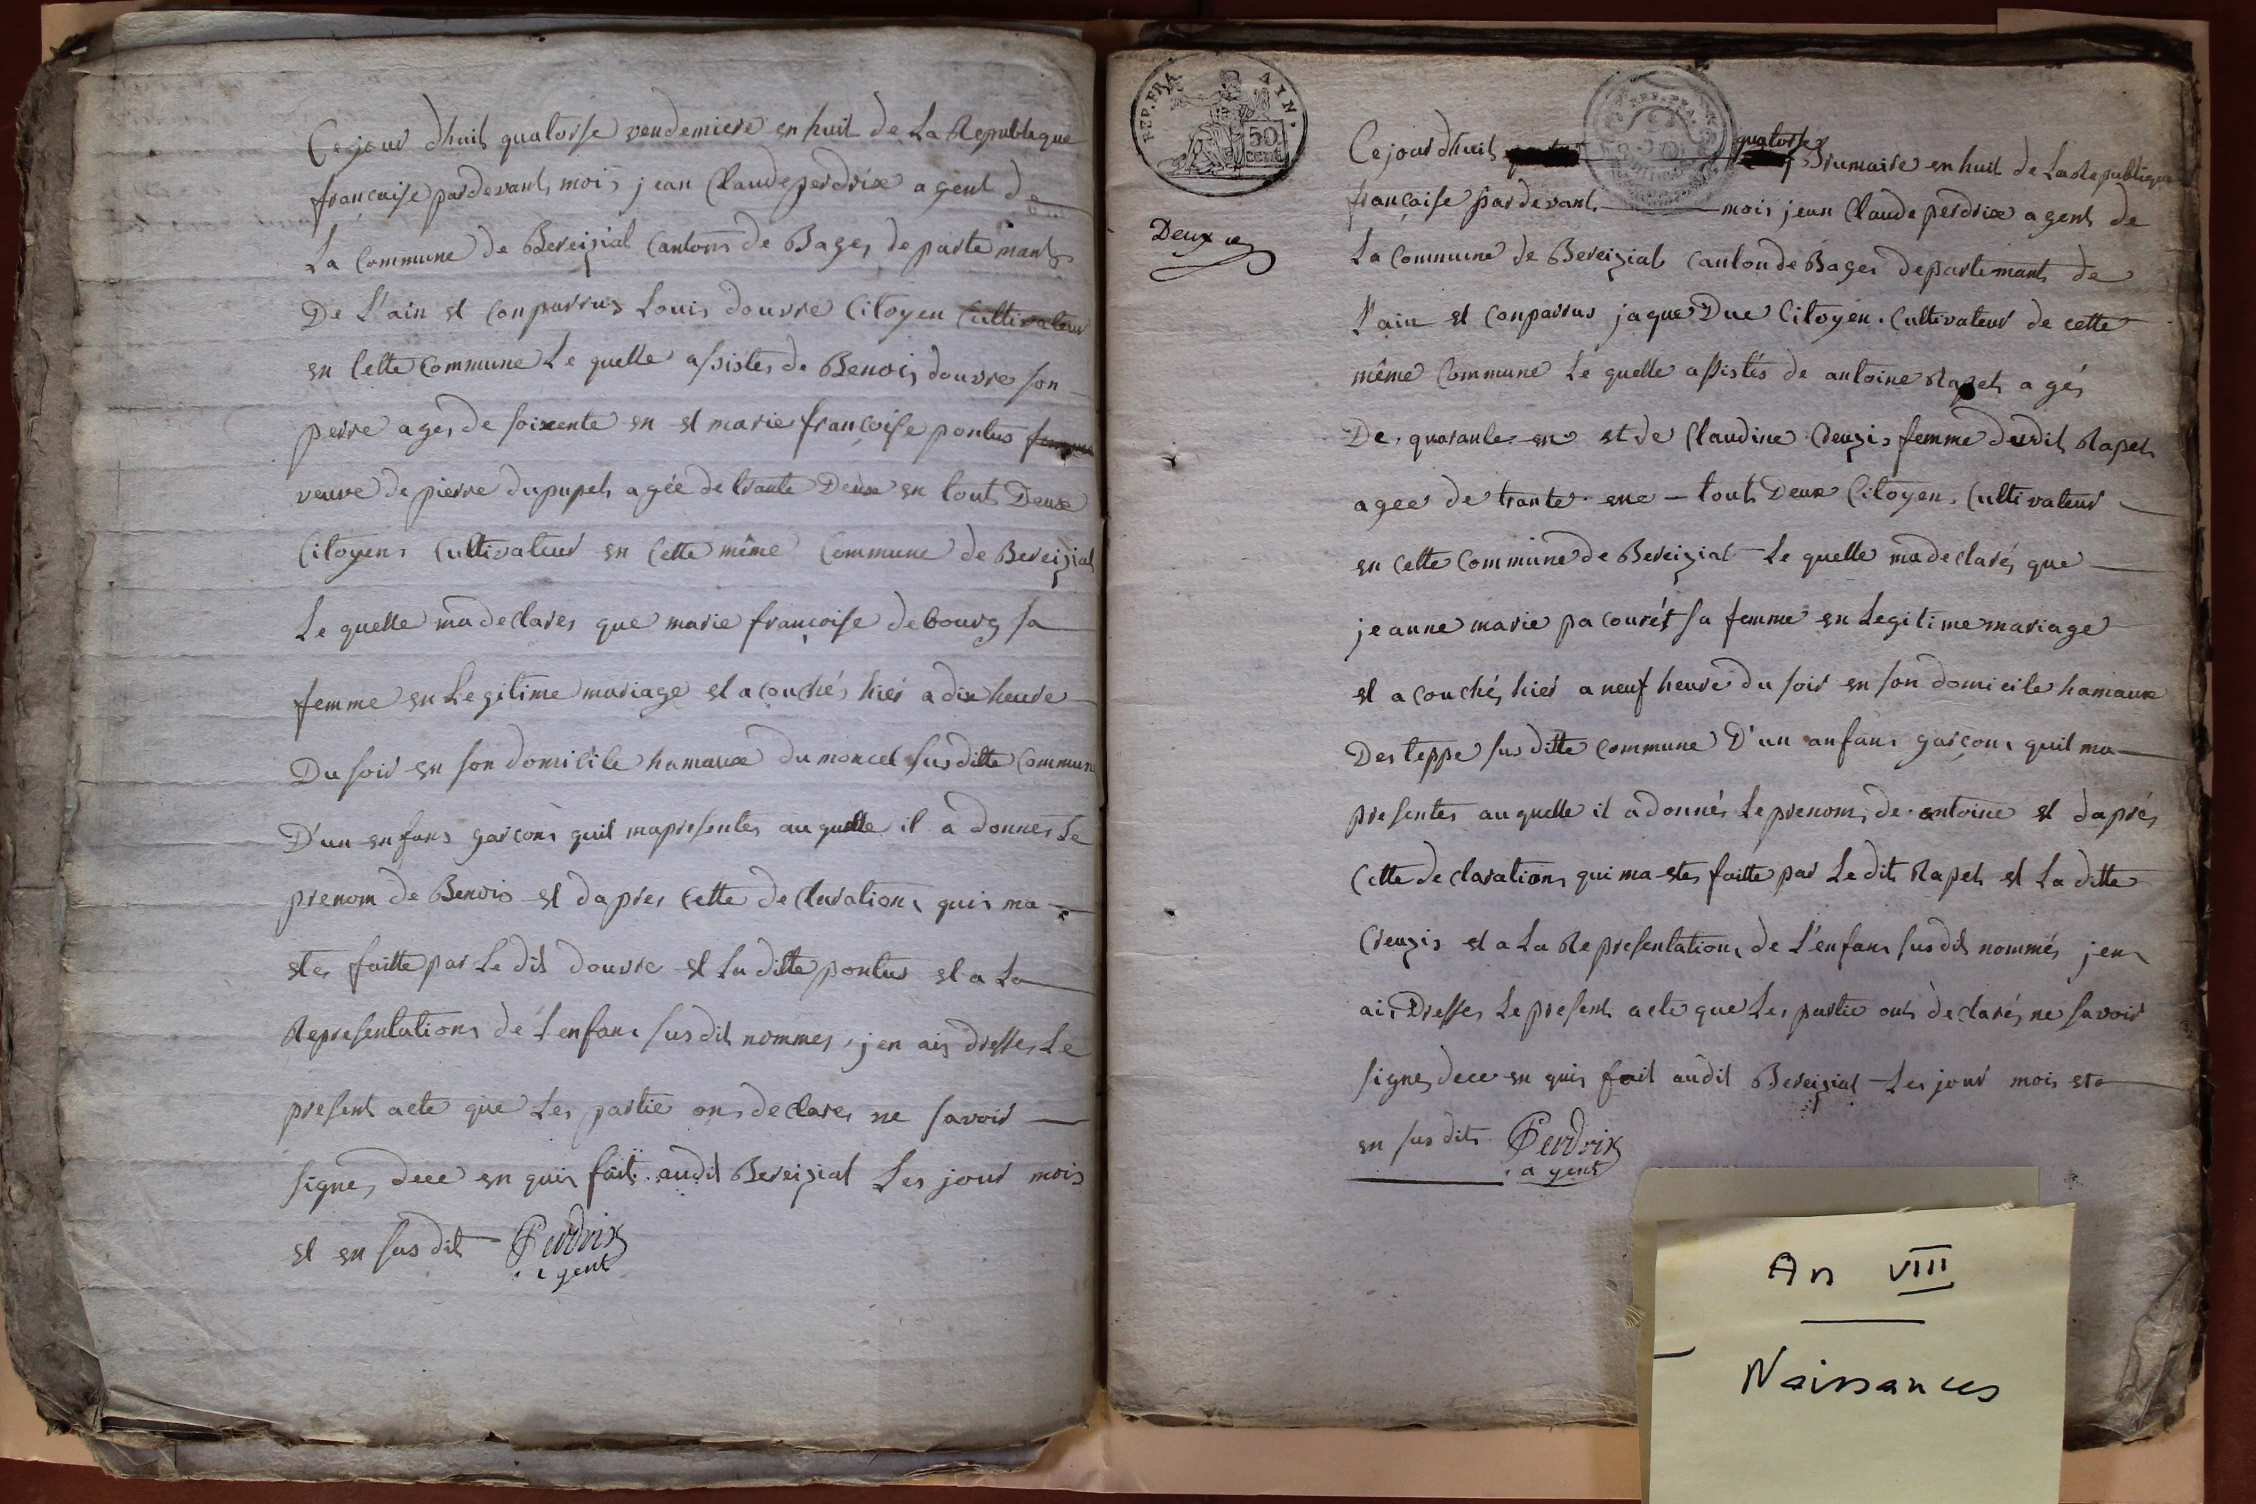 Cejour dhuit quatorse vendemiere en huit de La Republique
francaise pardevant mois jean Claude perdrix agent de
La Commune de Bereizial Cantons de Bages departemant
De L'ain et Conparrus Louis douvre Citoyen Cultivateur
en Cette Commune Le quelle assistes de Benois douvre son
perre ages de soixente en et marie francoise pontus
veuve de pierre dupupet agée de trante Deux en tout Deux
Citoyens Cultivateur en Cette même Commune de Bereizial
Le quelle ma declares que marie françoise debourg sa
femme en Legitime mariage et a couchés hier a dix heure
Du soir en son domicile hamaux du moncel susditte Commune
D'un enfans garçons quil mapresentes au quelle il a donnes Le
prenom de Benois et dapres Cette declarations quis ma
etes faitte par Le dit douvre et La ditte pontus et a La
Representations de L'enfans susdit nommes, jen ais dresses Le
present acte que Les partie ons declares ne savoir
signes dece en quis fait audit Bereizial Les jour mois
et en susdit Perdrix
agent
REP. FRA. AIN.
50 cent
Deux
Cejourdhuit quatorse Brumaire en huit de La Republique
française pardevant mois jean Claude perdrix agent de
La Commune de Bereizial Canton de Bages departemant de
L'ain et Conparrus jaque Duc Citoyen Cultivateur de cette
même Commune Le quelle assistés de antoine Rapet agés
De quarante en et de Claudine Creuzis femme dudit Rapet
agee de trante une tout Deux Citoyens Cultivateur
en Cette Commune de Bereizial Le quelle ma declarés que
jeanne marie pacouret sa femme en Legitime mariage
et a couchés hier a neuf heure du soir en son domicile hamaux
Des teppe susditte commune D'un anfans garçons quil ma
presentes auquelle il a donnés Le prenoms de antoine et daprés
Cette declarations qui ma etes faitte par Le dit Rapet et La ditte
Creuzis et a La Representations de L'enfans susdit nommés jens
ais Dresses Le present acte que Les partie ont declarés ne savoir
signes dece en quis fait audit Bereizial Les jour mois et
en susdits Perdrix
agent
An VIII
Naissances